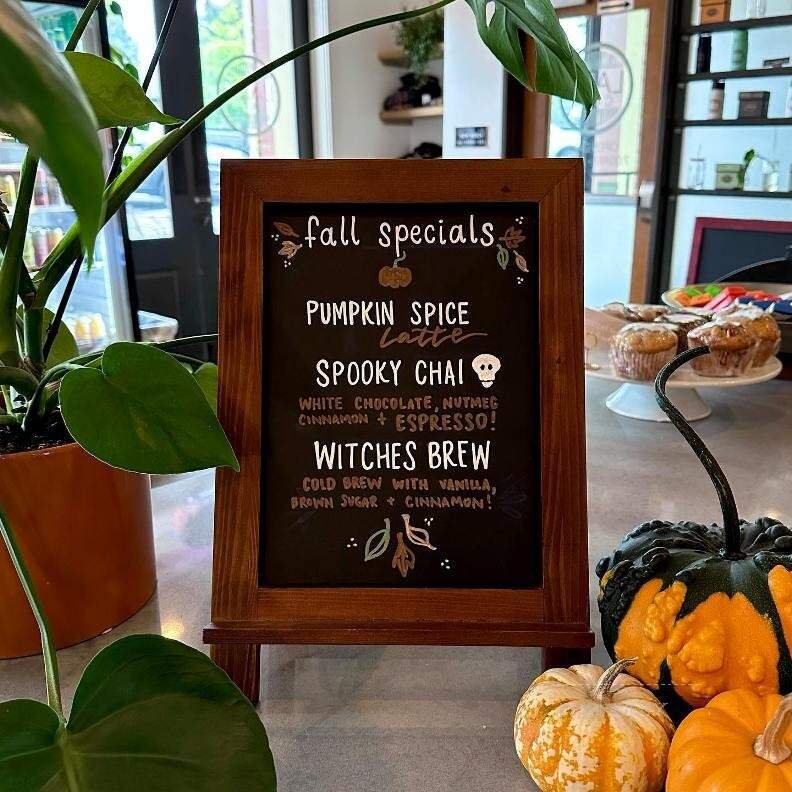 fall specials
PUMPKIN SPICE
latte
SPOOKY CHAI
WHITE CHOCOLATE, NUTMEG
CINNAMON + ESPRESSO!
WITCHES BREW
COLD BREW WITH VANILLA,
BROWN SUGAR + CINNAMON!